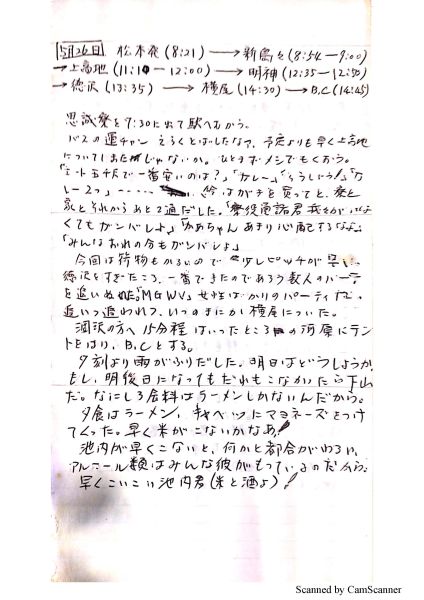 5月26日 松本発(8:21)→新島々(8:54−9:00)
→上高地(11:10−12:00)→明神(12:35−12:50)
→徳沢(13:35)→横尾(14:30)→B.C(14:45)
思誠寮を7:30に出て駅へむかう。
バスの運チャン えらくとばしたなァ、予定よりも早く上高地
についてしまったじゃないか。ひとまずメシでもくおう。
一番安いのは?」「カレー」
レーユつ」…… 絵はがきを買ってと、寮と
家とそれからあと2通だした。
くてもガンバレよ」「かあちゃん あまり心配するなよ」
「みんなおれの分もガンバレよ」
今回は荷物もかるいので ピッチが早い。
徳沢をすぎたころ、一番できたのであろう数人のパーティ
を追いぬいた。MGWV。女性ばかりのパーティで、
追いつ追われつ、いつのまにか横尾についた。
涸沢の方へ15分程はいったところの河原にテン
トをはり、B.Cとする。
夕刻より雨がふりだした。明日はどうしようか
もし、明後日になってもだれもこなかったら下山
だ。なにしろ食料はラーメンしかないんだから。
夕食はラーメン、キャベツにマヨネーズをつけ
てくった。早く米がこないかなあ!
池内が早くこないと、何かと都合がわるい、
アルコール類はみんな彼がもっているのだから。
早くこいこい池内君(米と酒よ)!
Scanned by CamScanner